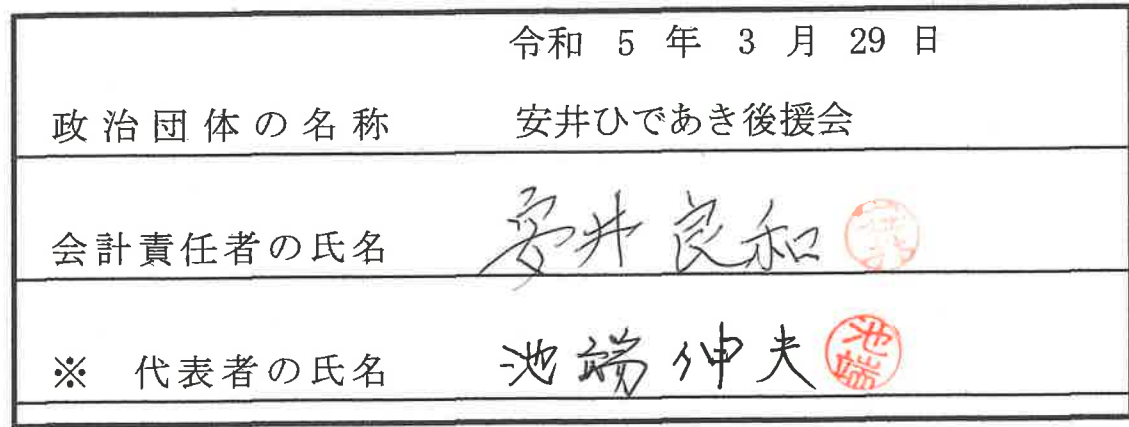 令和 5 年 3 月 29 日
政治団体の名称 安井ひであき後援会
会計責任者の氏名 安井良和
※ 代表者の氏名 池端伸夫 池端